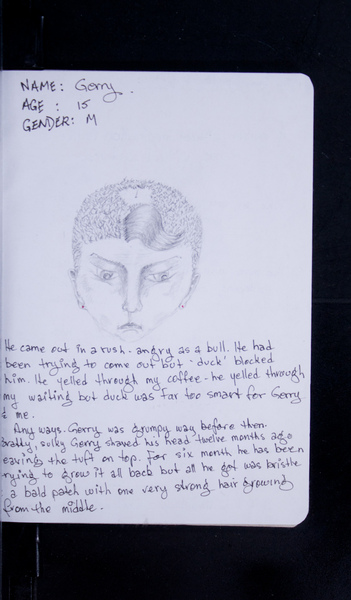 NAME: Gerry.
AGE : 15
GENDER: M
He came out in a rush - angry as a bull. He had
been trying to come out but - 'duck' blocked
him. He yelled through my coffee - he yelled through
my waiting but duck was far too smart for Gerry
& me.
Any ways. Gerry was grumpy way before then.
bratty, sulky Gerry shaved his head twelve months ago
eaving the tuft on top. For six month he has been
rying to grow it all back but all he got was bristle
a bald patch with one very strong hair growing
from the middle.